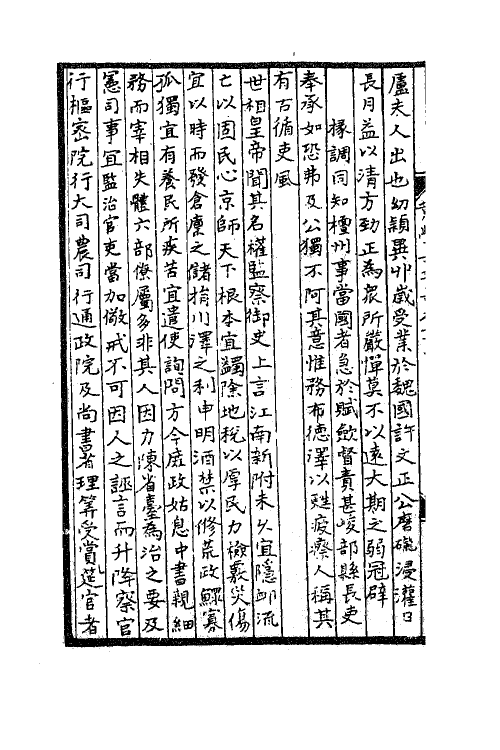 盧夫人出也幼穎異丱歲受業於魏國許文正公磨礲浸灌日
長月益以清方勁正為衆所嚴憚莫不以遠大期之弱冠辟
掾調同知檀州事當國者急於賦斂督責甚峻部縣長吏
奉承如恐弗及公獨不阿其意惟務布德澤以甦疲瘵人稱其
有古循吏風
世祖皇帝聞其名擢監察御史上言江南新附未久宜隱卹流
亡以固民心京師天下根本宜蠲除地税以厚民力檢覈災傷
宜以時而發倉廪之儲捐川澤之利申明酒禁以修荒政鰥寡
孤獨宜有養民所疾苦宜遣使詢問方今庶政姑息中書親細
務而宰相失體六部僚屬多非其人因力陳省臺為治之要及
憲司事宜監治官吏當加儆戒不可因人之誣言而升降察官
行樞密院行大司農司行通政院及尚書省理筭受賞冗官者